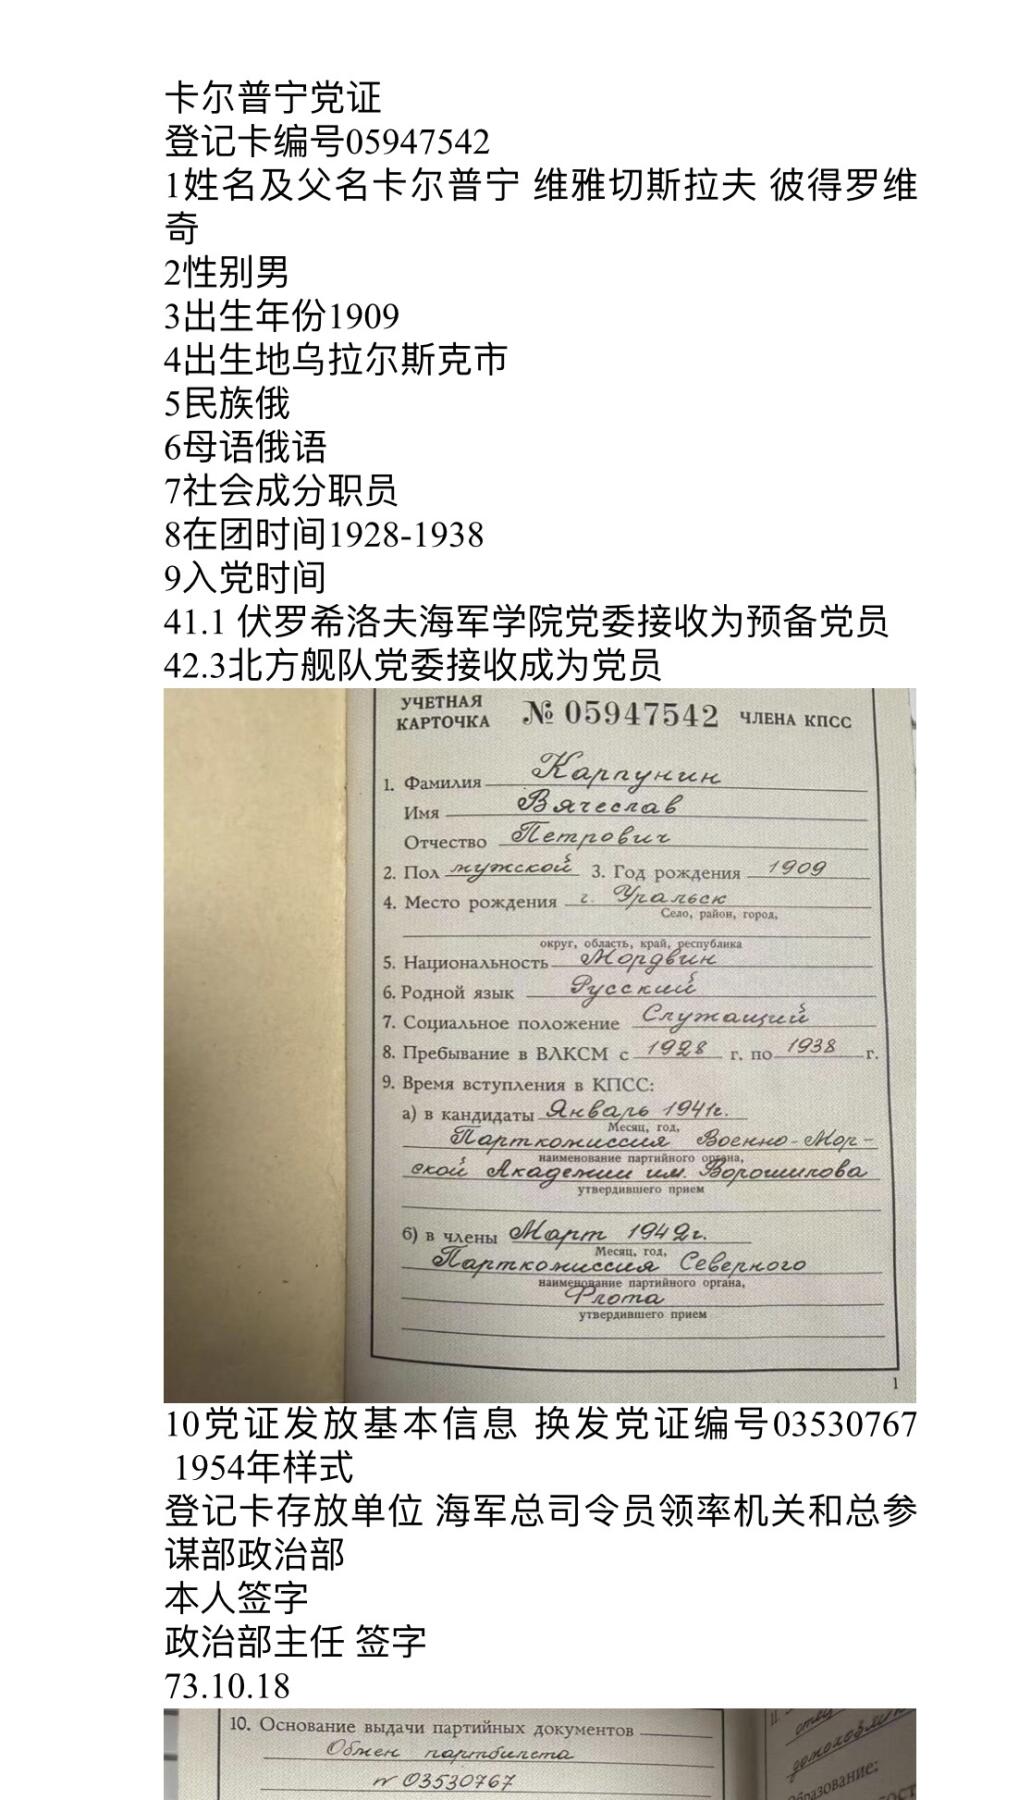 卡尔普宁党证
登记卡编号05947542
1姓名及父名卡尔普宁 维雅切斯拉夫 彼得罗维
奇
2性别男
3出生年份1909
4出生地乌拉尔斯克市
5民族俄
6母语俄语
7社会成分职员
8在团时间1928-1938
9入党时间
41.1 伏罗希洛夫海军学院党委接收为预备党员
42.3北方舰队党委接收成为党员
УЧЕТНАЯ
КАРТОЧКА № 05947542 ЧЛЕНА КПСС
1. Фамилия Карпунин
Имя Вячеслав
Отчество Петрович
2. Пол мужской 3. Год рождения 1909
4. Место рождения г. Уральск
Село, район, город,
округ, область, край, республика
5. Национальность Мордвин
6. Родной язык Русский
7. Социальное положение Служащий
8. Пребывание в ВЛКСМ с 1928 г. по 1938 г.
9. Время вступления в КПСС:
а) в кандидаты Январь 1941г.
Месяц, год,
Парткомиссия Военно-Мор-
наименование партийного органа,
ской Академии им. Ворошилова
утвердившего прием
б) в члены Март 1942г.
Месяц, год,
Парткомиссия Северного
наименование партийного органа,
Флота
утвердившего прием
1
10党证发放基本信息 换发党证编号03530767
1954年样式
登记卡存放单位 海军总司令员领率机关和总参
谋部政治部
本人签字
政治部主任 签字
73.10.18
10. Основание выдачи партийных документов
Обмен партбилета
№ 03530767
11.
образование: